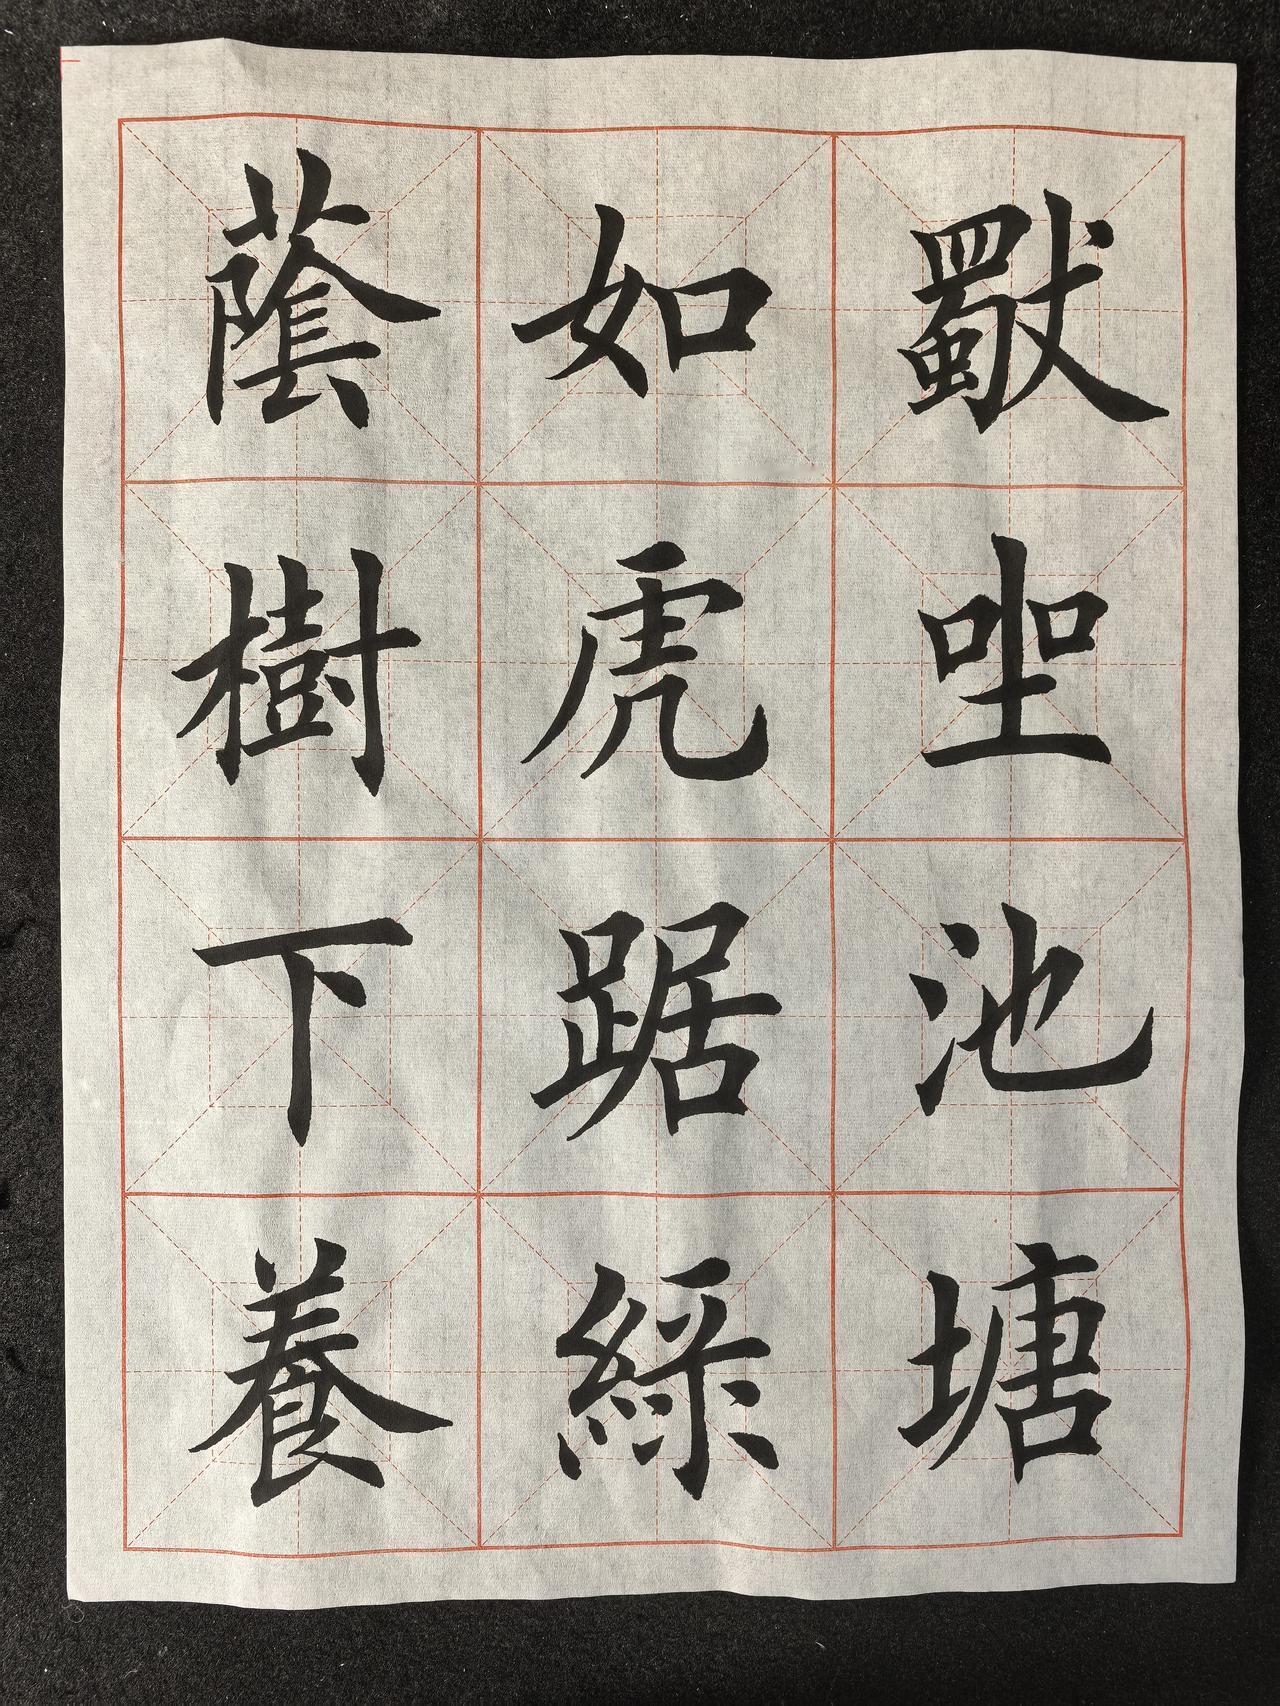 獨坐池塘
如虎踞綠
蔭樹下養